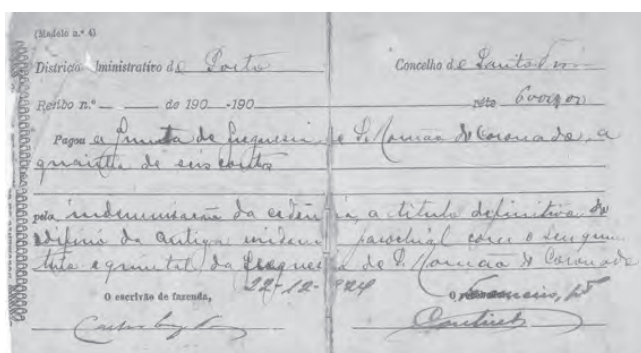 (Modêlo n.º 4)
Districto dministrativo de Porto Concelho de Santo
Recibo n.º de 190 -190 réis 6000$00
Pagou a Junta de freguesia de S. Romão do Coronado, a
quantia de seis contos
pela indemnisação da cedencia, a titulo definitivo do
edificio da antiga residencia parochial com o seu
e quintal da freguesia de S. Romão do Coronado
22-12-924
O escrivão de fazenda, O